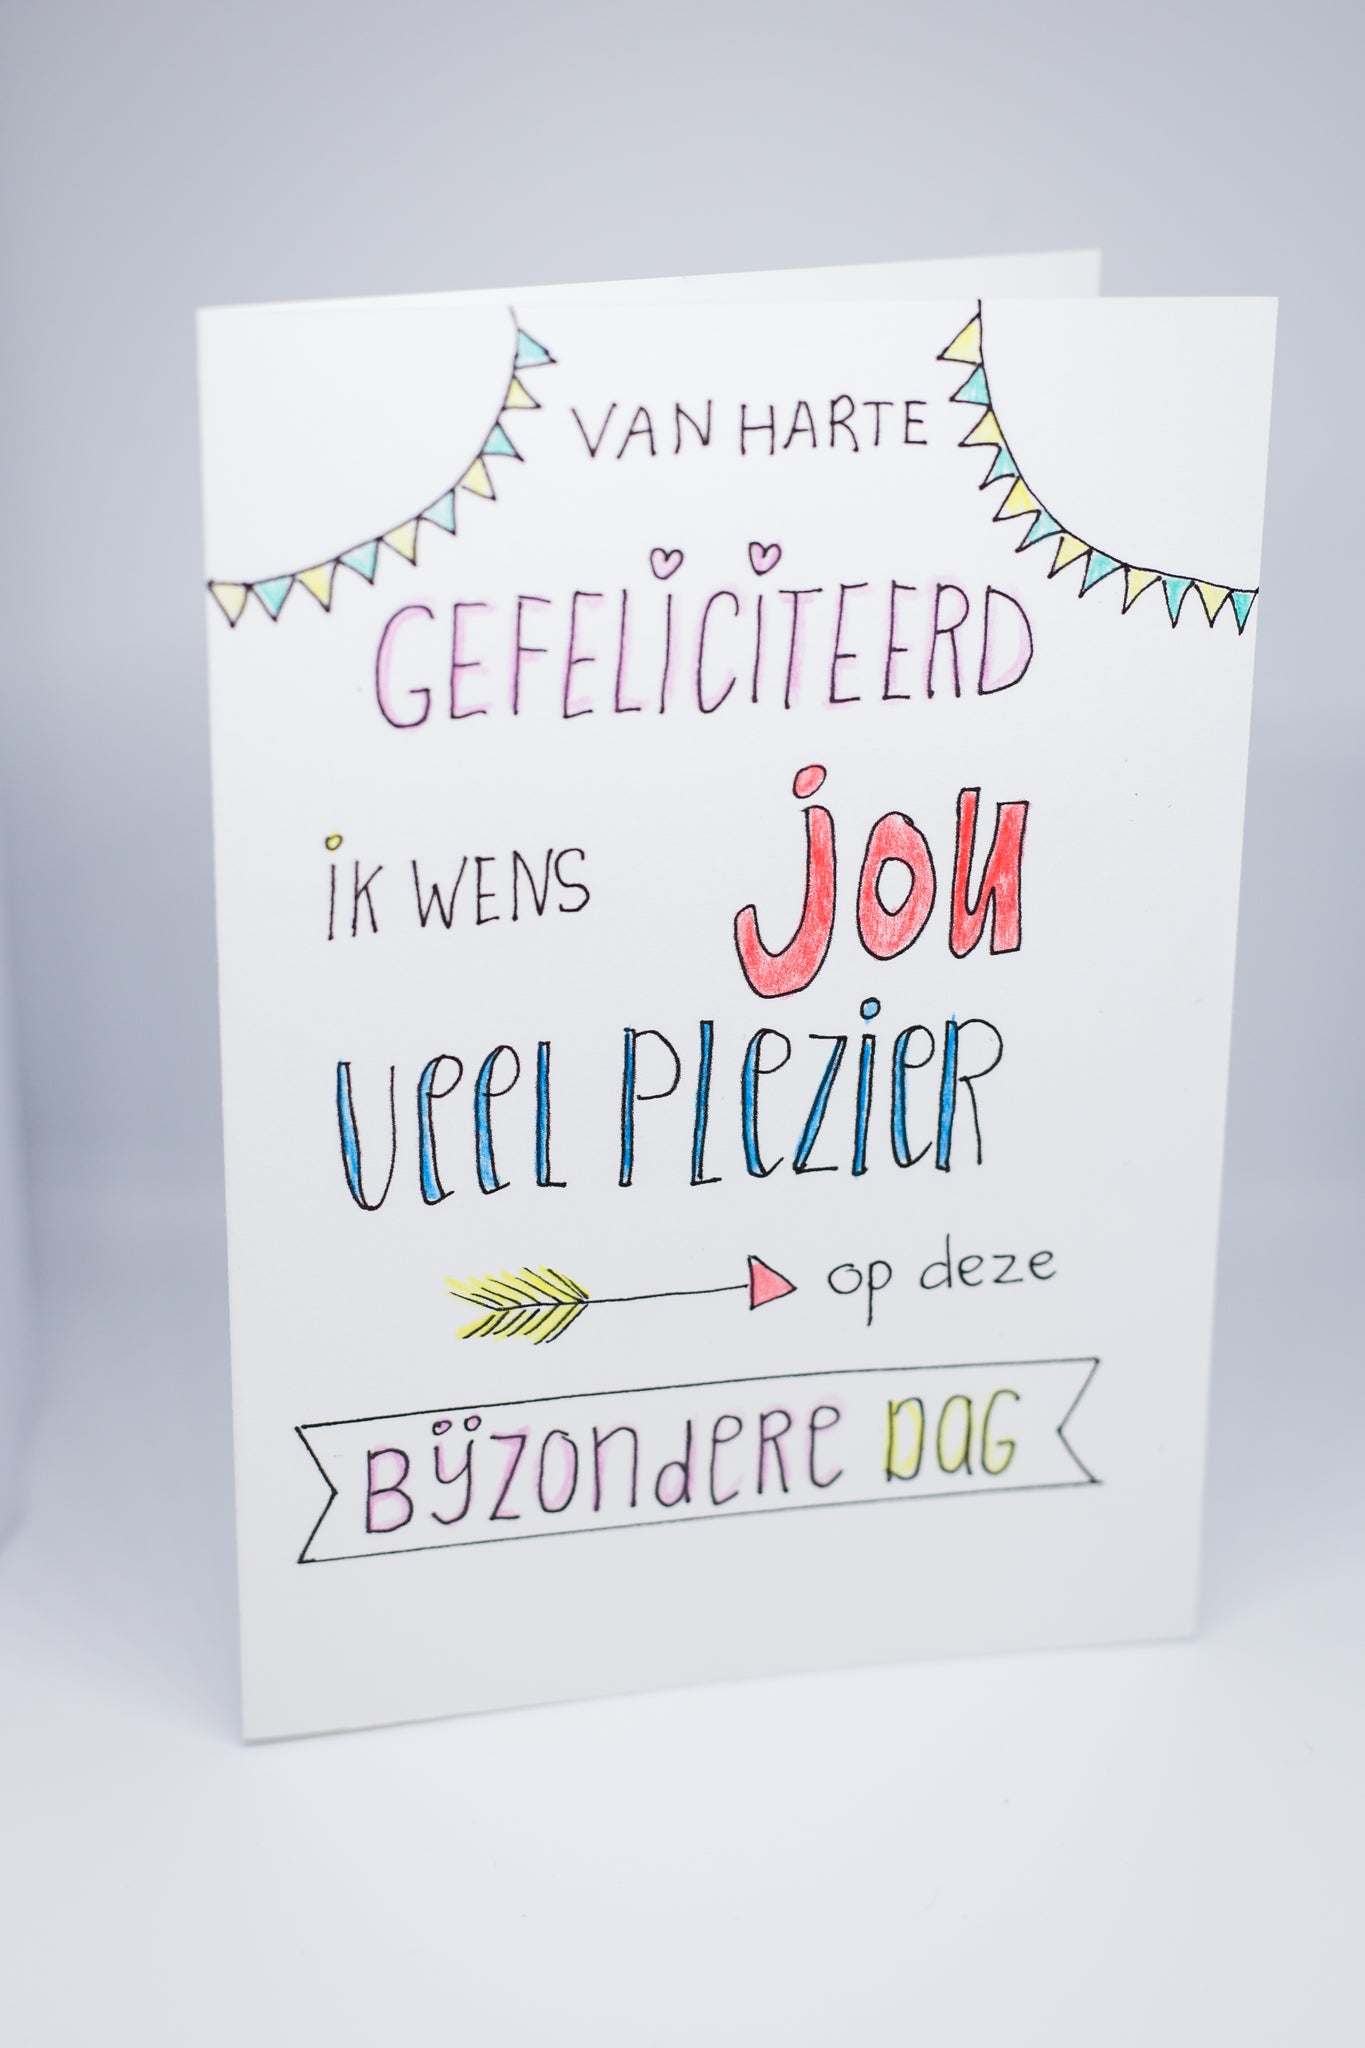 VAN HARTE
GEFELiCiTEERD
iK WENS jou
VEEL PLEZiER
op deze
BIJZONDERE DAG